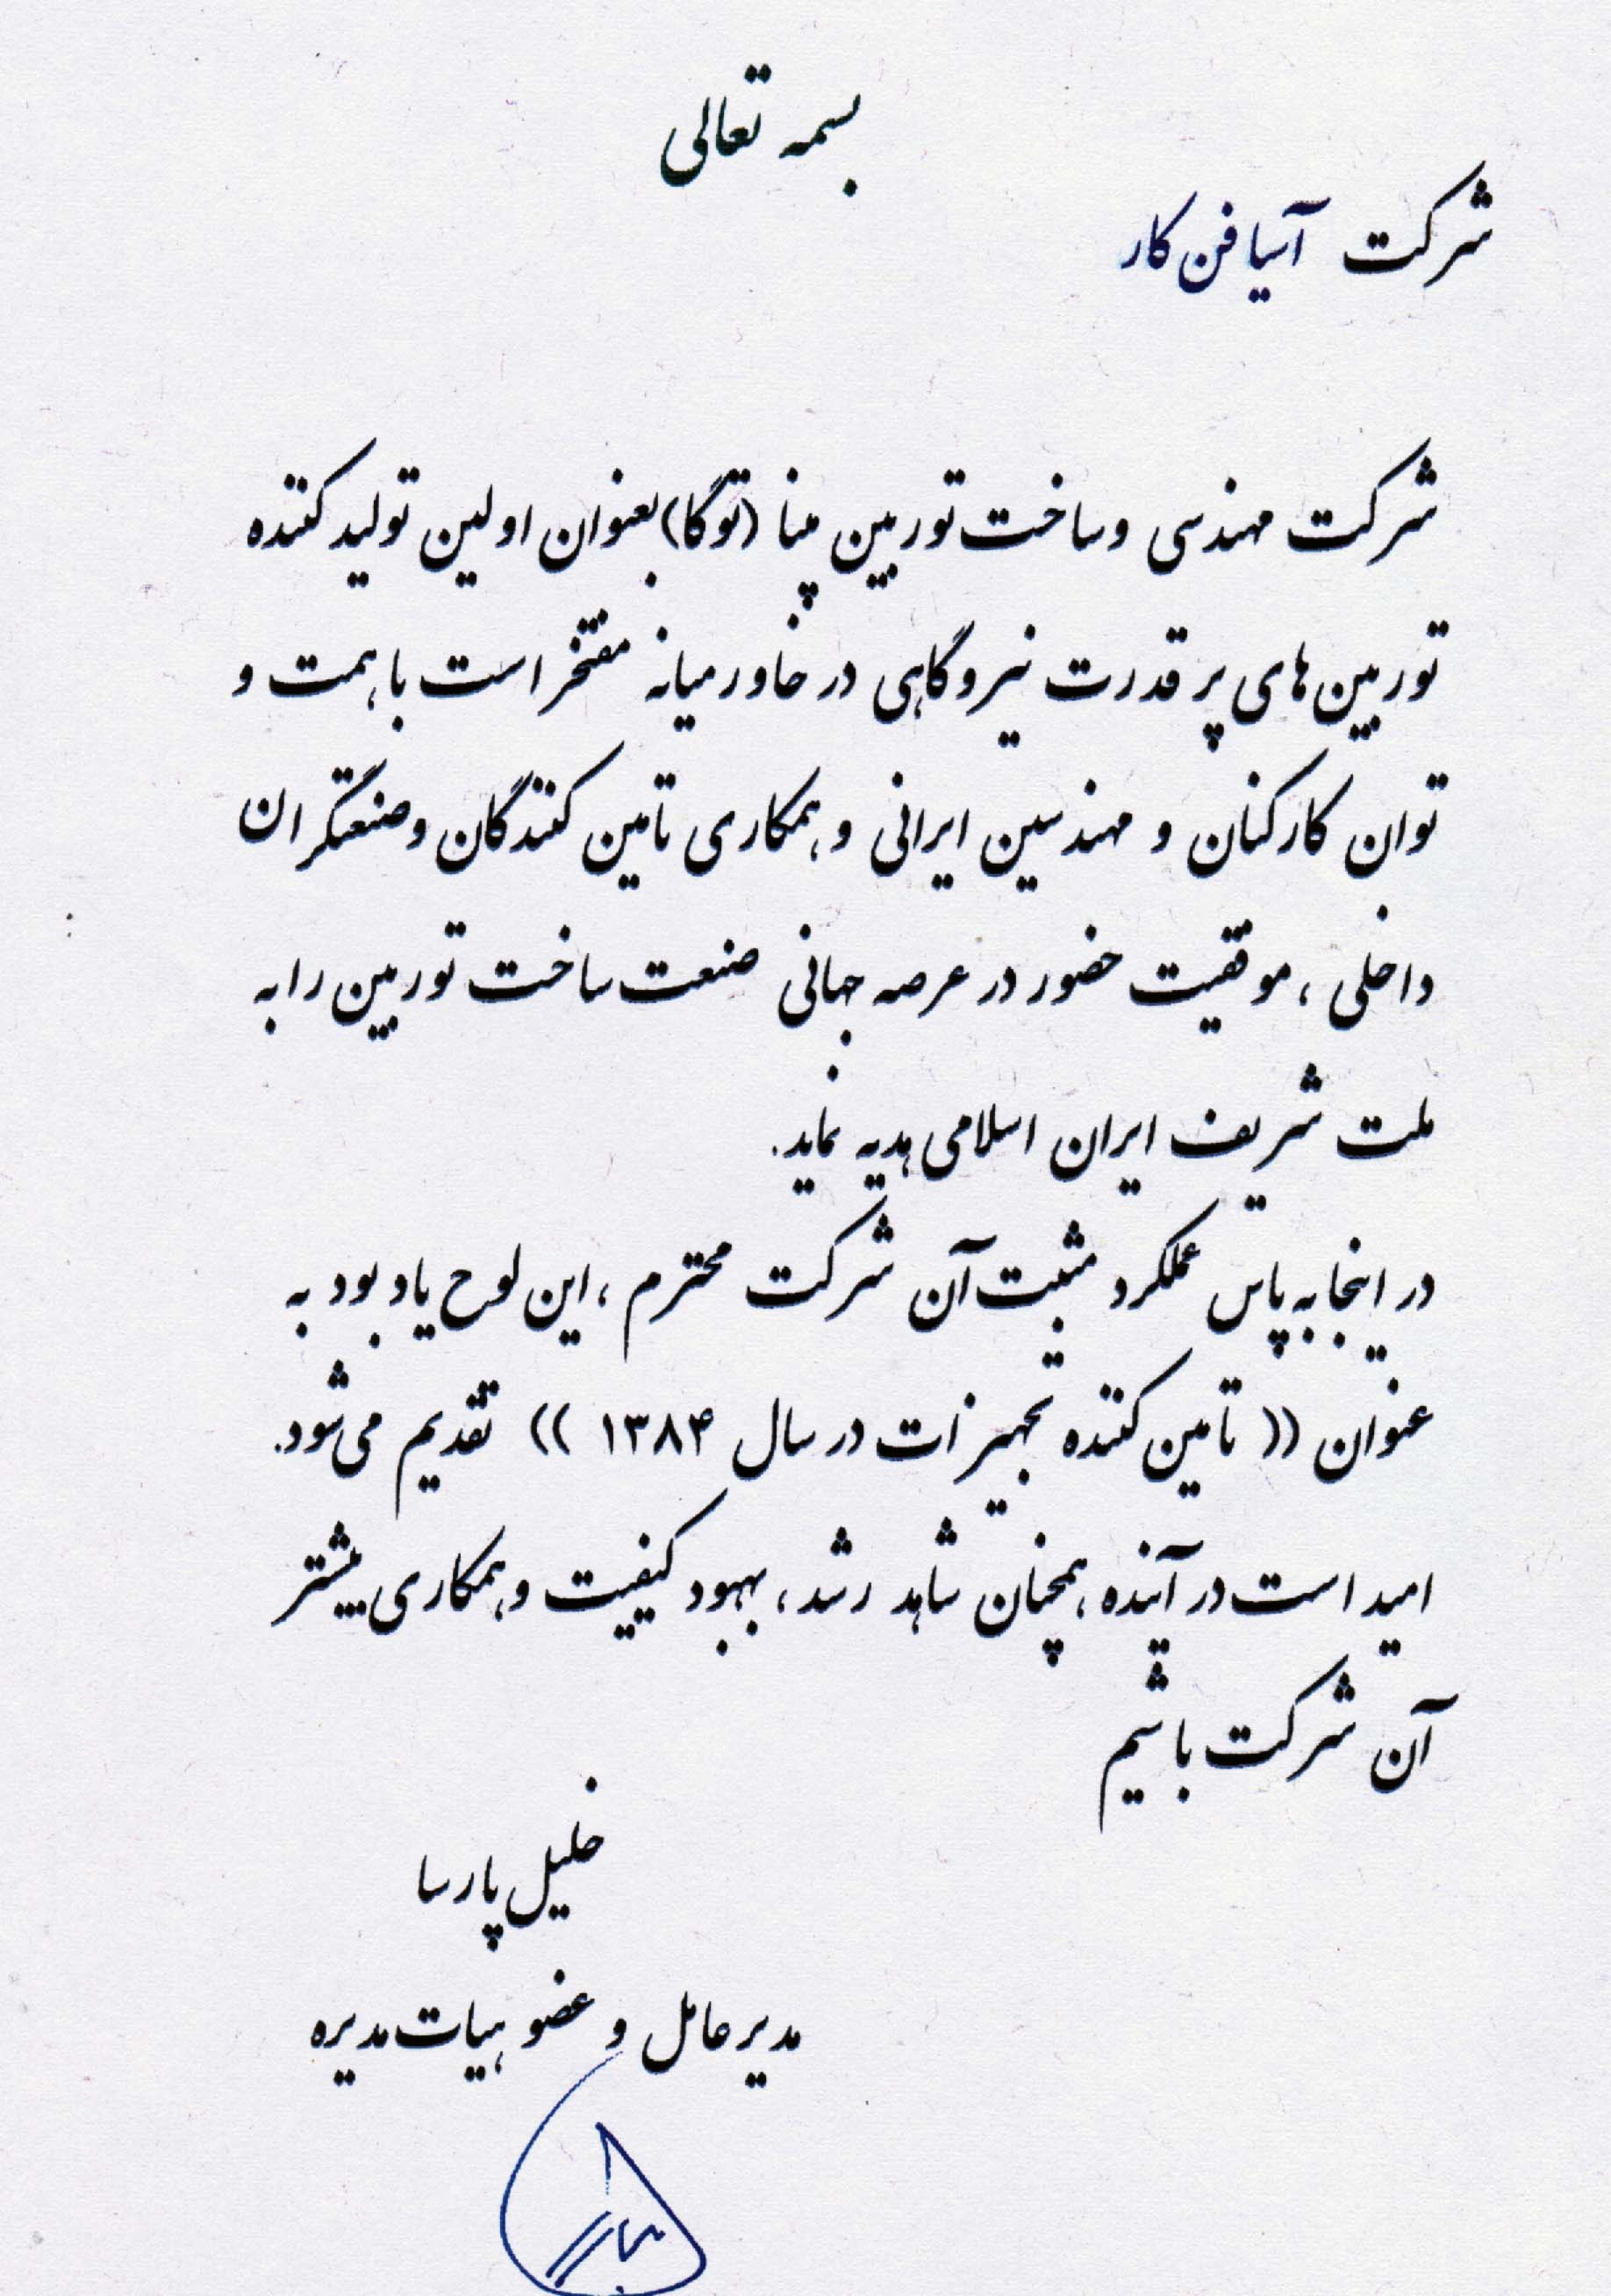 بسمه تعالی
شرکت آسیا فن کار
شرکت مهندسی و ساخت توربین مپنا (توگا) بعنوان اولین تولید کننده
توربین های پر قدرت نیروگاهی در خاورمیانه مفتخر است با همت و
توان کارکنان و مهندسین ایرانی و همکاری تامین کنندگان و صنعتگران
داخلی ، موفقیت حضور در عرصه جهانی صنعت ساخت توربین را به
ملت شریف ایران اسلامی هدیه نماید.
در اینجا به پاس عملکرد مثبت آن شرکت محترم ، این لوح یاد بود به
عنوان (( تامین کننده تجهیزات در سال ۱۳۸۴ )) تقدیم می شود.
امید است در آینده همچنان شاهد رشد ، بهبود کیفیت و همکاری بیشتر
آن شرکت باشیم
خلیل پارسا
مدیر عامل و عضو هیات مدیره